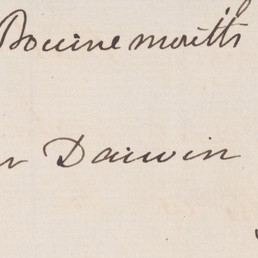 Bournemouth
r Darwin